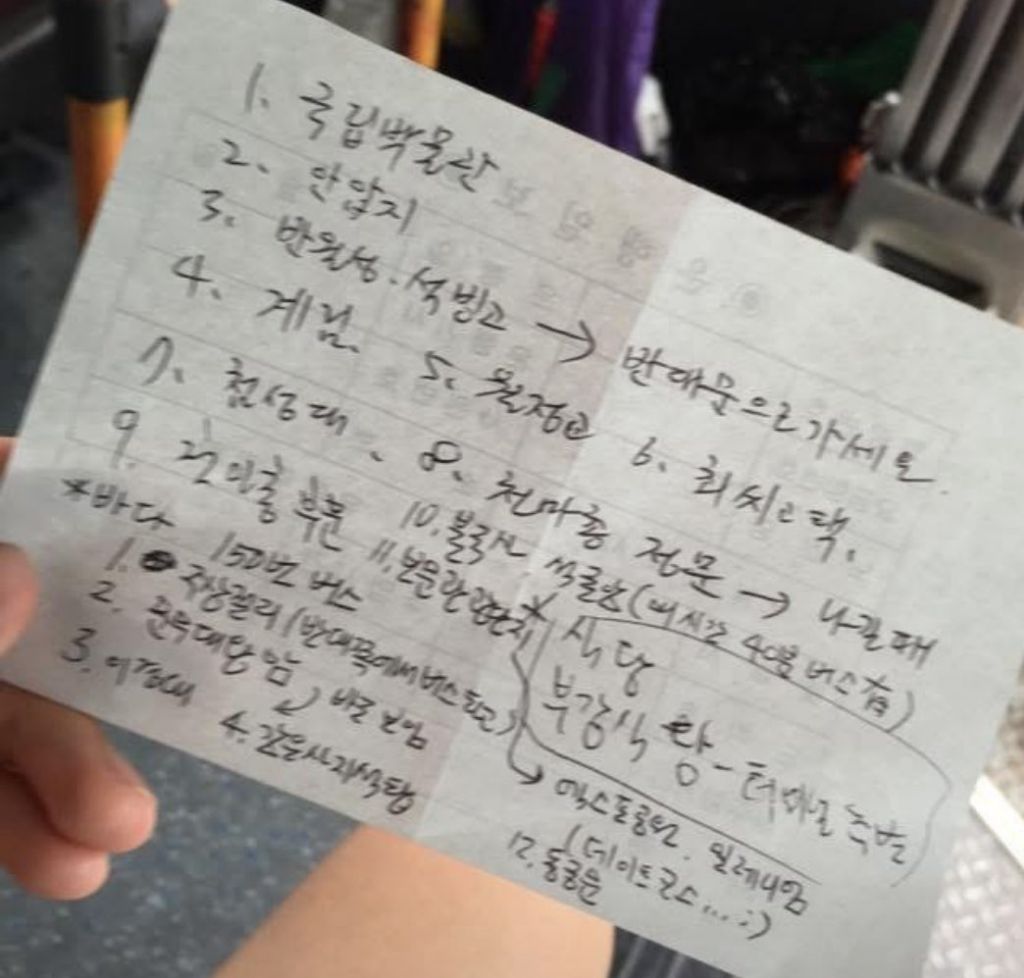 1. 국립박물관
2. 안압지
3. 반월성. 석빙고 → 반대문으로가세요.
4. 계림. 5. 월정교 6. 최씨고택.
7. 첨성대. 8. 천마총 정문 → 나갈때
9. 부분 10. 불국사 석굴암(매시간 40분 버스有)
11. 보문관광단지
*바다 150번 버스
1. 주상절리 (반대쪽에서버스타고)
2. 문무대왕암, 바로 보임
3. 이견대 4. 감은사지석탑
* 식당
부강식당 - 터미널
→ 엑스포공원. 밀레니엄
(데이트코스...:)
12. 동궁원